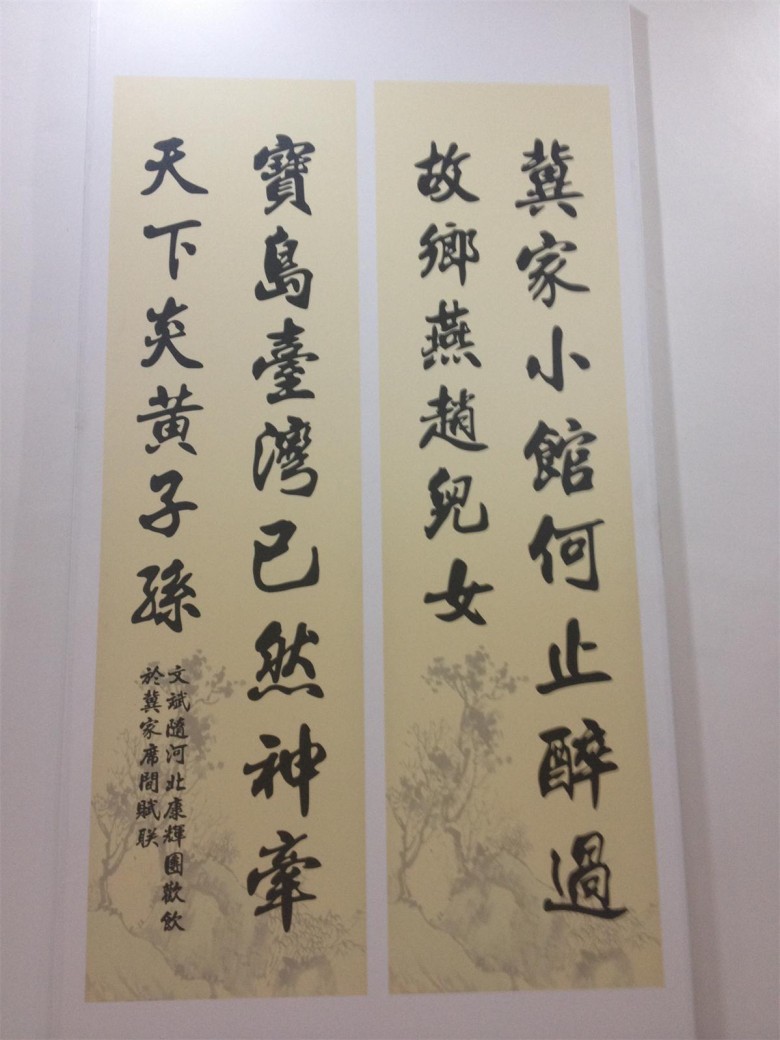 冀家小館何止醉過
故鄉燕趙兒女
寶島臺灣已然神牽
天下炎黄子孫
文斌隨河北康輝團歡飲
於冀家席間賦联